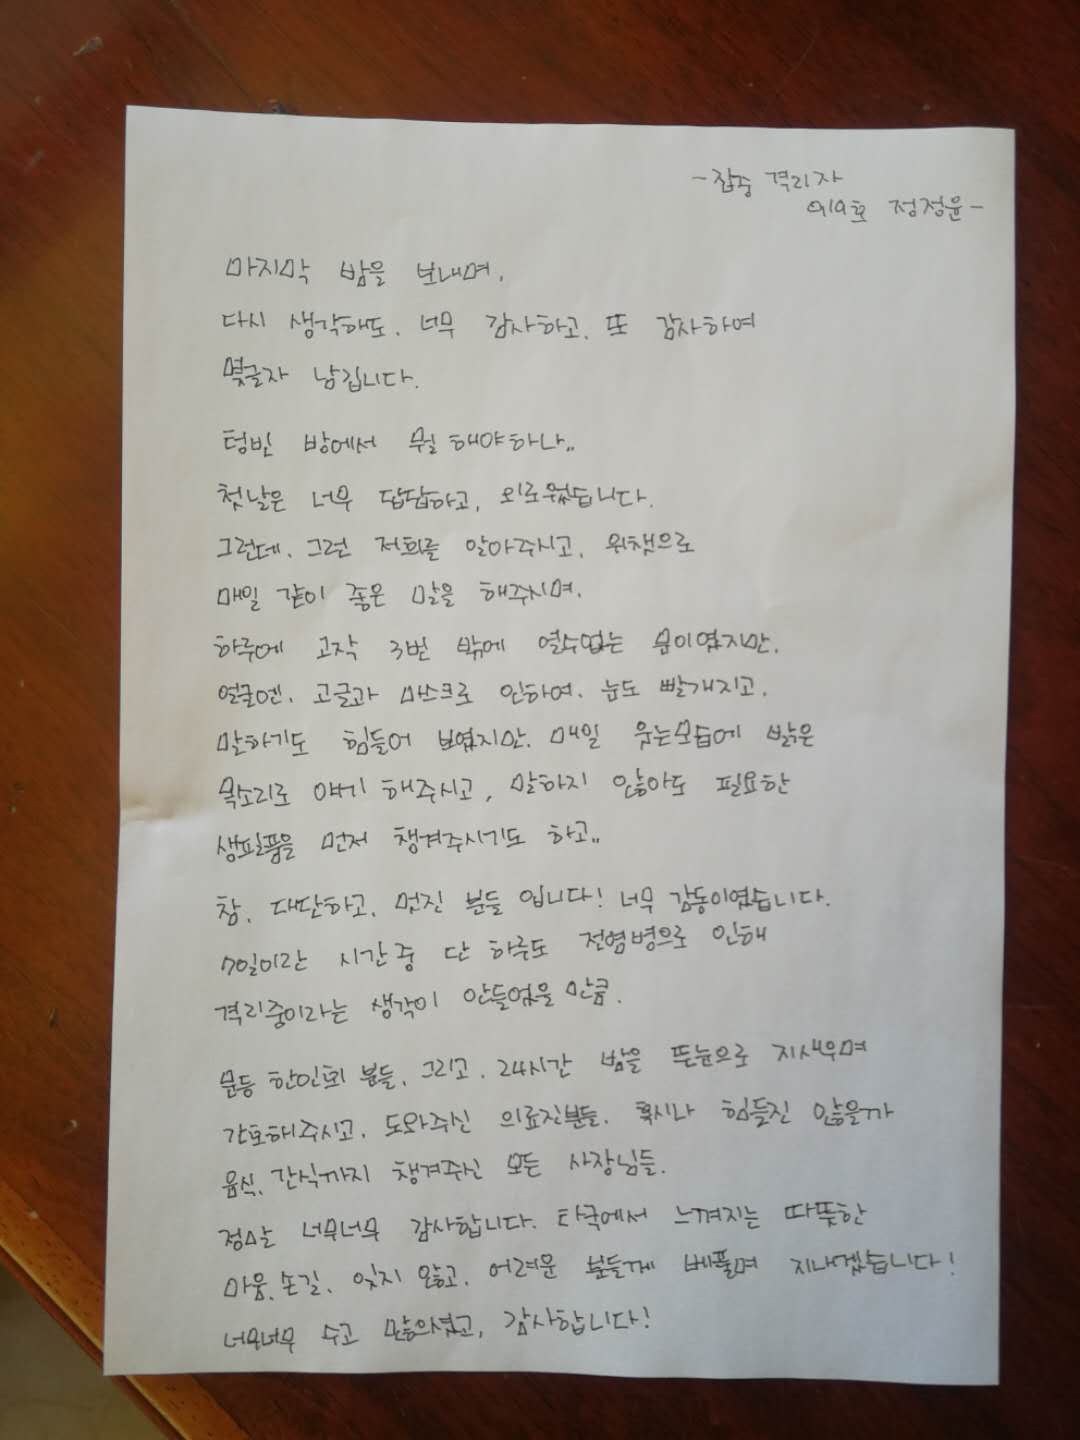 -집중 격리자
919호 정정윤-
마지막 밤을 보내며.
다시 생각해도. 너무 감사하고. 또 감사하여
몇글자 남깁니다.
텅빈 방에서 뭘 해야하나..
첫날은 너무 답답하고, 외로웠습니다.
그런데. 그런 저희를 알아주시고, 위챗으로
매일 같이 좋은 말을 해주시며.
하루에 고작 3번 밖에 열수없는 문이였지만.
얼굴엔. 고글과 마스크로 인하여. 눈도 빨개지고.
말하기도 힘들어 보였지만. 매일 웃는모습에 밝은
목소리로 얘기 해주시고, 말하지 않아도 필요한
생필품을 먼저 챙겨주시기도 하고..
참. 대단하고. 멋진 분들 입니다! 너무 감동이였습니다.
7일이란 시간중 단 하루도 전염병으로 인해
격리중이라는 생각이 안들었을 만큼.
문등 한인회 분들. 그리고. 24시간 밤을 뜬눈으로 지새우며
간호해주시고. 도와주신 의료진분들. 혹시나 힘들진 않을까
음식. 간식까지 챙겨주신 모든 사장님들.
정말 너무너무 감사합니다. 타국에서 느껴지는 따뜻한
마음. 손길. 잊지 않고. 어려운 분들께 베풀며 지내겠습니다!
너무너무 수고 많으셨고, 감사합니다!